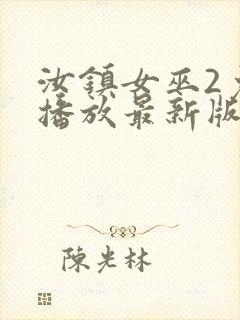 汝鎮女巫2
播放最新版
陳光林